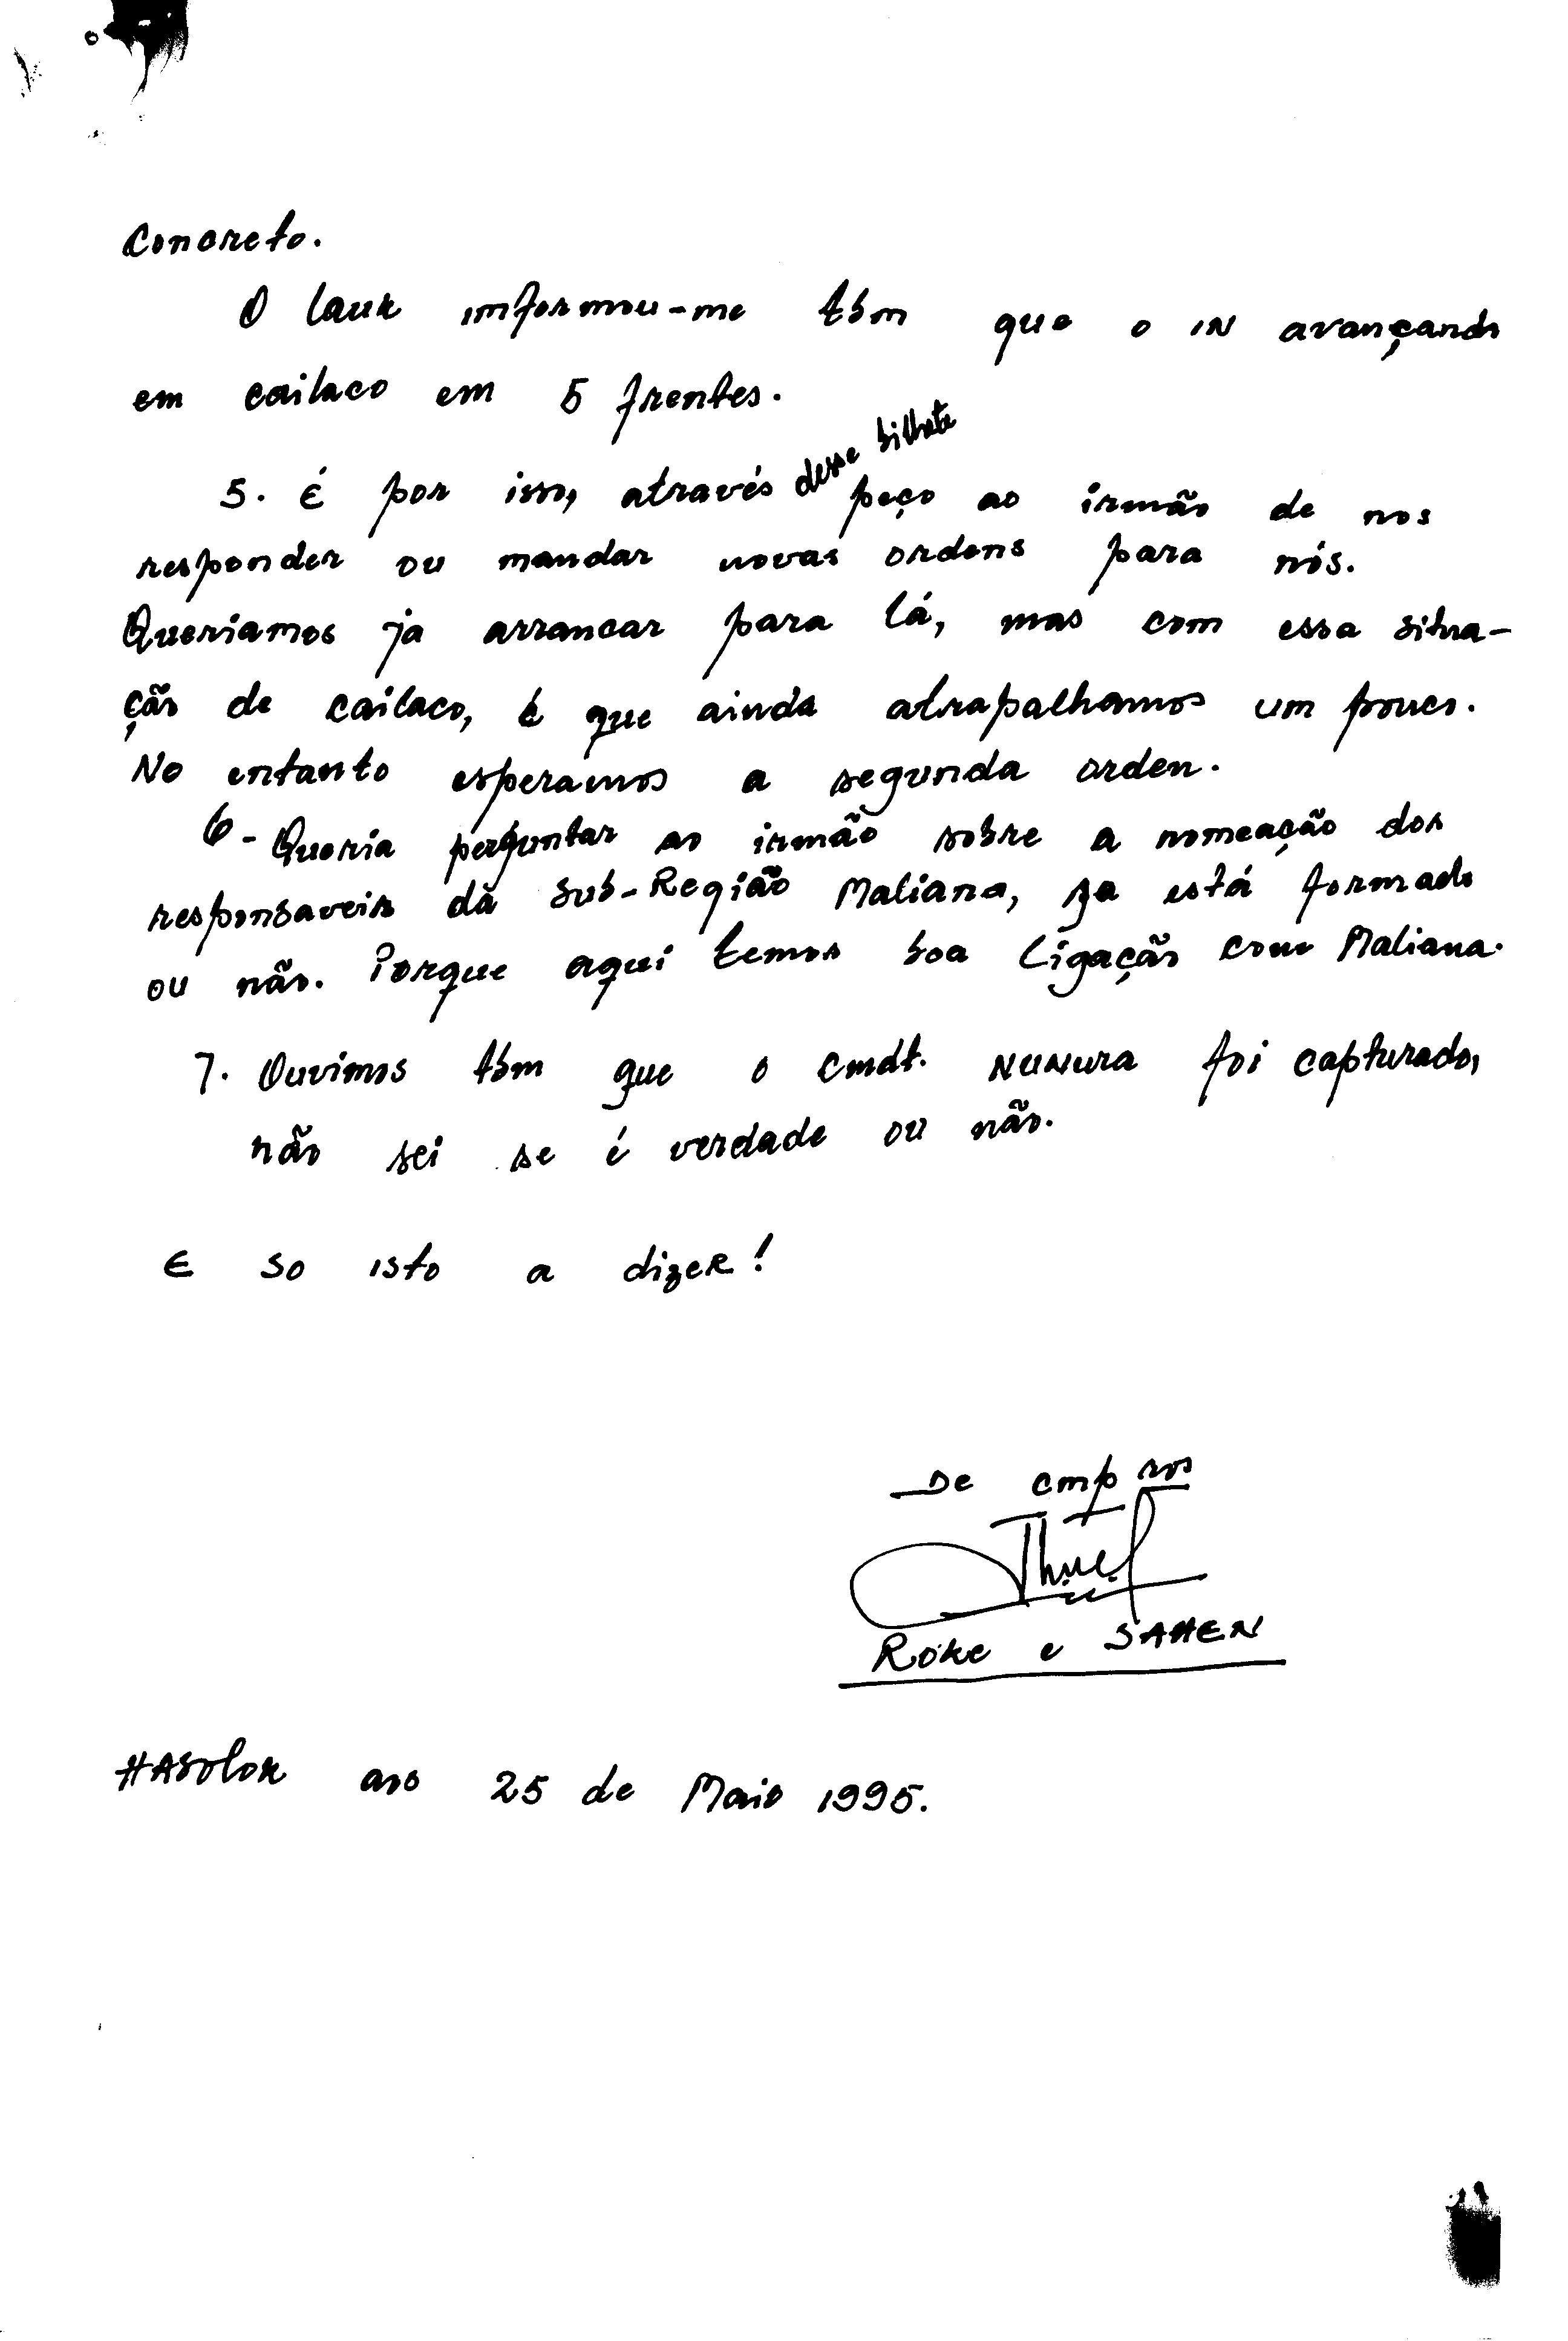 Concreto.
O laur imformou-me tbm que o IN avançando
em cailaco em 5 frentes.
5. É por isso, através desse bilhete peço ao irmão de nos
responder ou mandar novas ordens para nós.
Queriamos ja arrancar para lá, mas com essa situa-
ção de cailaco, é que ainda atrapalhamos um pouco.
No entanto esperamos a segunda orden.
6- Queria perguntar ao irmão sobre a nomeação dos
responsaveis da Sub-Região Maliana, ja está formado
ou não. Porque aqui temos boa Ligação com Maliana.
7. Ouvimos tbm que o cmdt. NUNURA foi capturado,
não sei se é verdade ou não.
E so isto a dizer!
De cmp nos
ROKE e SAHEN
HASOLOR aos 25 de Maio 1995.